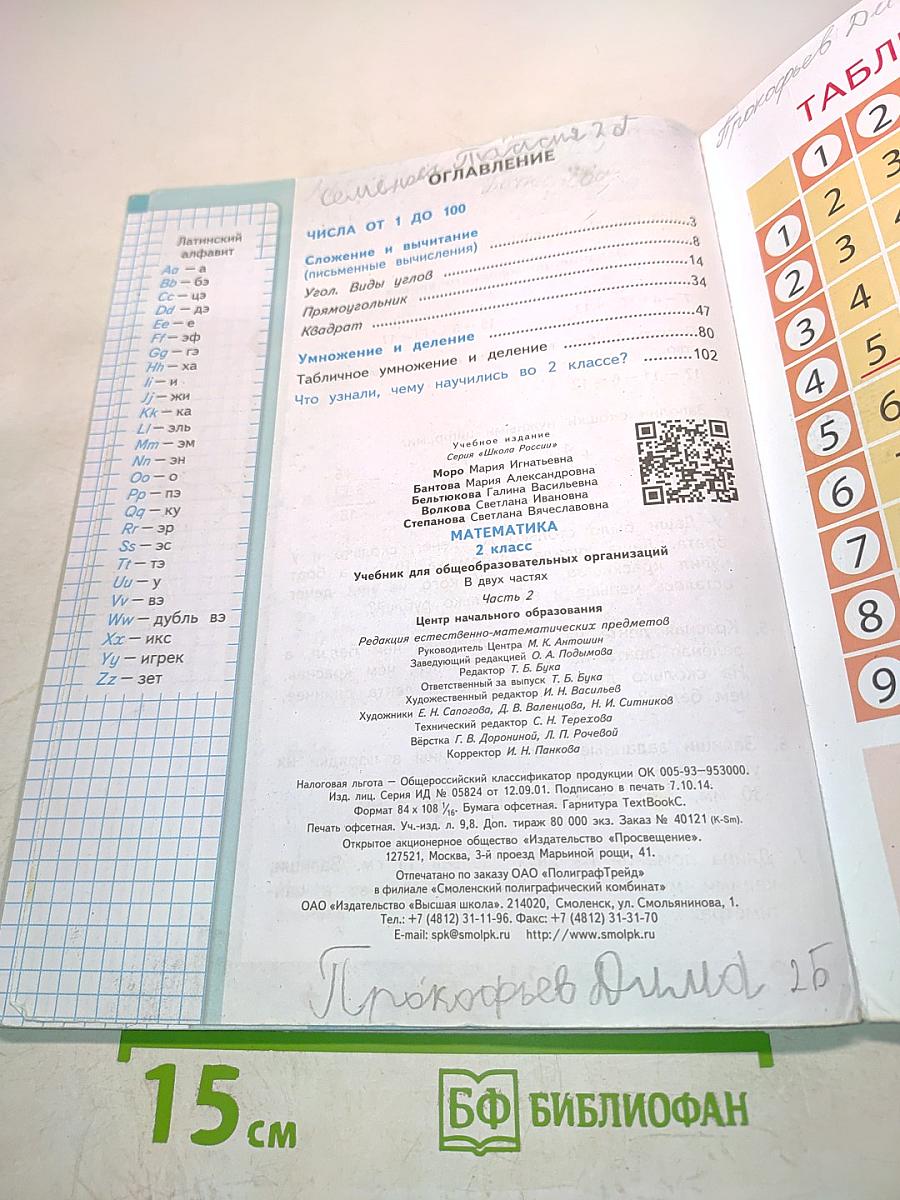 Латинский
алфавит
Aa — а
Bb — бэ
Cc — цэ
Dd — дэ
Ee — е
Ff — эф
Gg — гэ
Hh — ха
Ii — и
Jj — жи
Kk — ка
Ll — эль
Mm — эм
Nn — эн
Oo — о
Pp — пэ
Qq — ку
Rr — эр
Ss — эс
Tt — тэ
Uu — у
Vv — вэ
Ww — дубль вэ
Xx — икс
Yy — игрек
Zz — зет
2 б
ОГЛАВЛЕНИЕ
ЧИСЛА ОТ 1 ДО 100
Сложение и вычитание
(письменные вычисления) ..... 3
Угол. Виды углов ..... 8
Прямоугольник ..... 14
Квадрат ..... 34
Умножение и деление ..... 47
Табличное умножение и деление ..... 80
Что узнали, чему научились во 2 классе? ..... 102
Учебное издание
Серия «Школа России»
Моро Мария Игнатьевна
Бантова Мария Александровна
Бельтюкова Галина Васильевна
Волкова Светлана Ивановна
Степанова Светлана Вячеславовна
МАТЕМАТИКА
2 класс
Учебник для общеобразовательных организаций
В двух частях
Часть 2
Центр начального образования
Редакция естественно-математических предметов
Руководитель Центра М. К. Антошин
Заведующий редакцией О. А. Подымова
Редактор Т. Б. Бука
Ответственный за выпуск Т. Б. Бука
Художественный редактор И. Н. Васильев
Художники Е. Н. Сапогова, Д. В. Валенцова, Н. И. Ситников
Технический редактор С. Н. Терехова
Вёрстка Г. В. Дорониной, Л. П. Рочевой
Корректор И. Н. Панкова
Налоговая льгота — Общероссийский классификатор продукции ОК 005-93—953000.
Изд. лиц. Серия ИД № 05824 от 12.09.01. Подписано в печать 7.10.14.
Формат 84 x 108 1/16. Бумага офсетная. Гарнитура TextBookC.
Печать офсетная. Уч.-изд. л. 9,8. Доп. тираж 80 000 экз. Заказ № 40121 (K-Sm).
Открытое акционерное общество «Издательство «Просвещение».
127521, Москва, 3-й проезд Марьиной рощи, 41.
Отпечатано по заказу ОАО «ПолиграфТрейд»
в филиале «Смоленский полиграфический комбинат»
ОАО «Издательство «Высшая школа». 214020, Смоленск, ул. Смольянинова, 1.
Тел.: +7 (4812) 31-11-96. Факс: +7 (4812) 31-31-70
E-mail: spk@smolpk.ru http://www.smolpk.ru
Прокофьев Дима 2Б
Прокофьев Ди
ТАБЛ
1 2
1 2 3
2 3
3 4
4 5
5 6
6
7
8
9
15 см
БФ БИБЛИОФАН